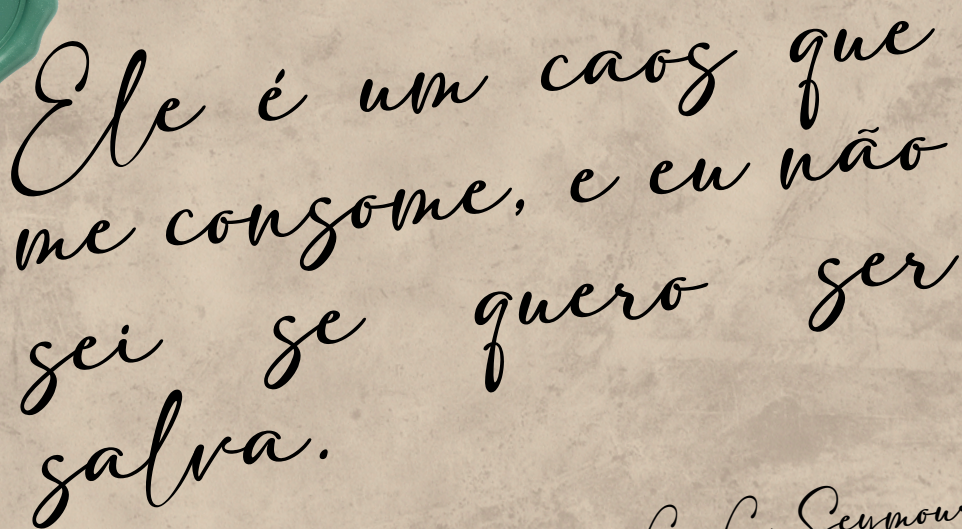 Ele é um caos que
me consome, e eu não
sei se quero ser
salva.
Seymour